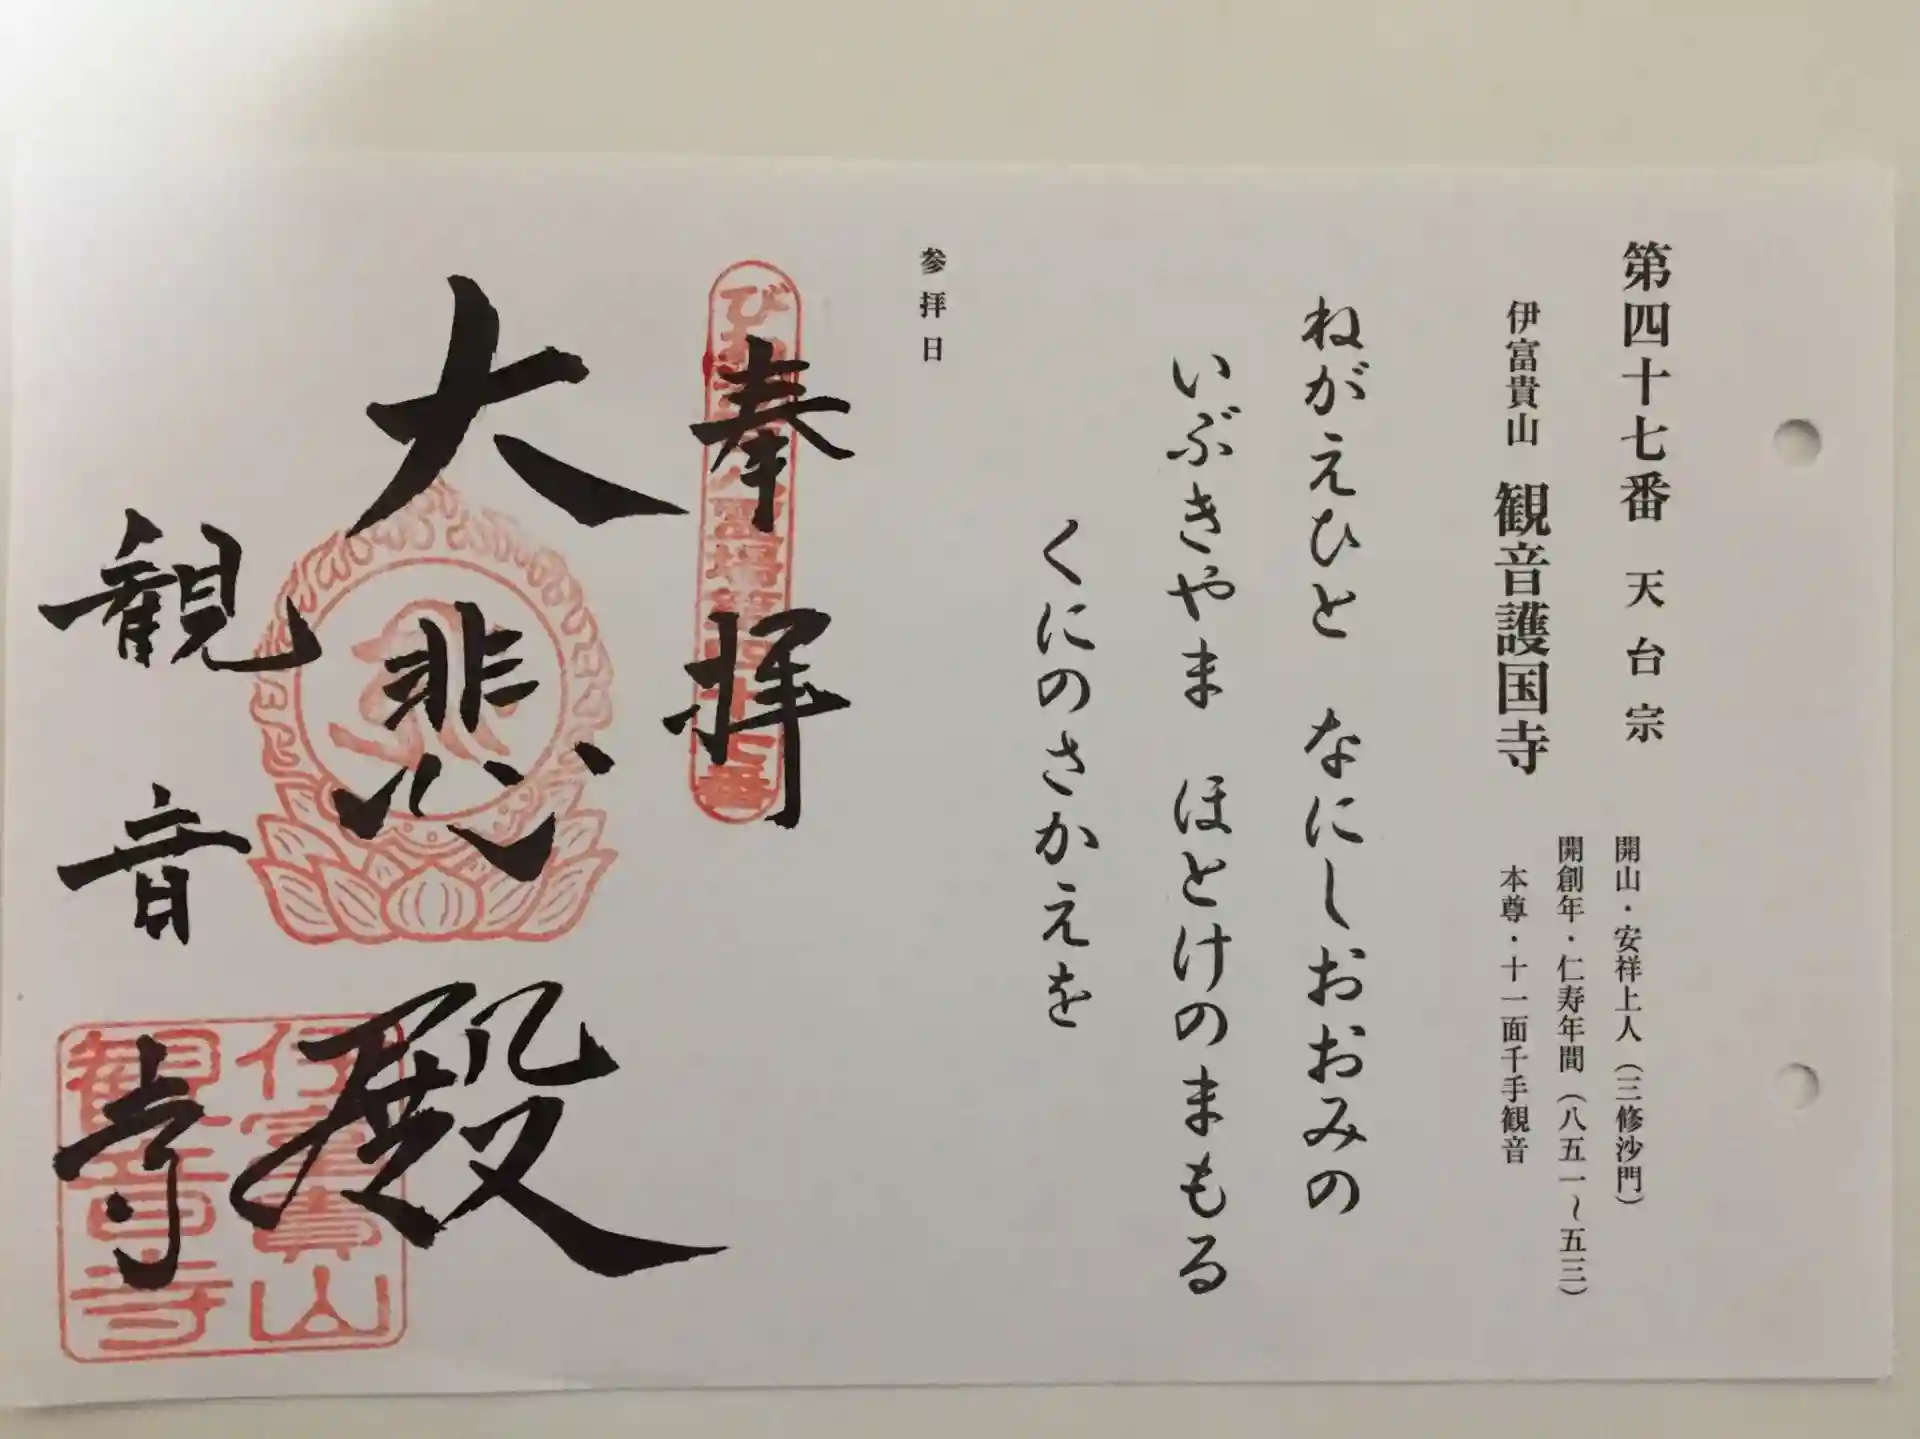 第四十七番 天台宗
伊富貴山 観音護国寺
開山・安祥上人（三修沙門）
開創年・仁寿年間（八五一～五三）
本尊・十一面千手観音
ねがえひと なにしおおみの
いぶきやま ほとけのまもる
くにのさかえを
参拝日
奉拝
大悲殿
観音寺
伊富貴山
観音寺